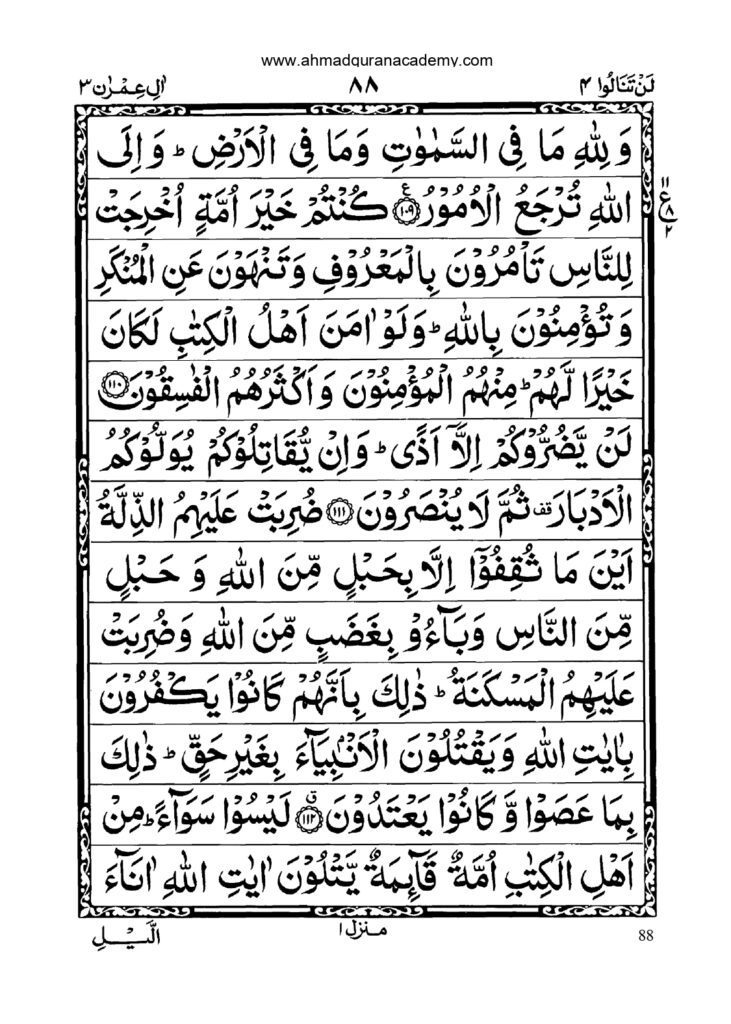 www.ahmadquranacademy.com
لَنْ تَنَالُوا ۴ ۸۸ اٰلِ عِمْرٰن ۳
وَ لِلّٰهِ مَا فِي السَّمٰوٰتِ وَمَا فِي الْاَرْضِ ؕ وَ اِلَى
اللّٰهِ تُرْجَعُ الْاُمُوْرُ ۝۱۰۹ ع كُنْتُمْ خَيْرَ اُمَّةٍ اُخْرِجَتْ
۱۱ ع ۸ ۲
لِلنَّاسِ تَاْمُرُوْنَ بِالْمَعْرُوْفِ وَتَنْهَوْنَ عَنِ الْمُنْكَرِ
وَ تُؤْمِنُوْنَ بِاللّٰهِ ؕ وَلَوْ اٰمَنَ اَهْلُ الْكِتٰبِ لَكَانَ
خَيْرًا لَّهُمْ ؕ مِنْهُمُ الْمُؤْمِنُوْنَ وَ اَكْثَرُهُمُ الْفٰسِقُوْنَ ۝۱۱۰
لَنْ يَّضُرُّوْكُمْ اِلَّاۤ اَذًى ؕ وَاِنْ يُّقَاتِلُوْكُمْ يُوَلُّوْكُمُ
الْاَدْبَارَ قف ثُمَّ لَا يُنْصَرُوْنَ ۝۱۱۱ ضُرِبَتْ عَلَيْهِمُ الذِّلَّةُ
اَيْنَ مَا ثُقِفُوْۤا اِلَّا بِحَبْلٍ مِّنَ اللّٰهِ وَ حَبْلٍ
مِّنَ النَّاسِ وَبَآءُوْ بِغَضَبٍ مِّنَ اللّٰهِ وَضُرِبَتْ
عَلَيْهِمُ الْمَسْكَنَةُ ؕ ذٰلِكَ بِاَنَّهُمْ كَانُوْا يَكْفُرُوْنَ
بِاٰيٰتِ اللّٰهِ وَيَقْتُلُوْنَ الْاَنْۢبِيَآءَ بِغَيْرِ حَقٍّ ؕ ذٰلِكَ
بِمَا عَصَوْا وَّ كَانُوْا يَعْتَدُوْنَ ۝۱۱۲ ق لَيْسُوْا سَوَآءً ؕ مِنْ
اَهْلِ الْكِتٰبِ اُمَّةٌ قَآئِمَةٌ يَّتْلُوْنَ اٰيٰتِ اللّٰهِ اٰنَآءَ
88 منزل ۱ الَّيْلِ